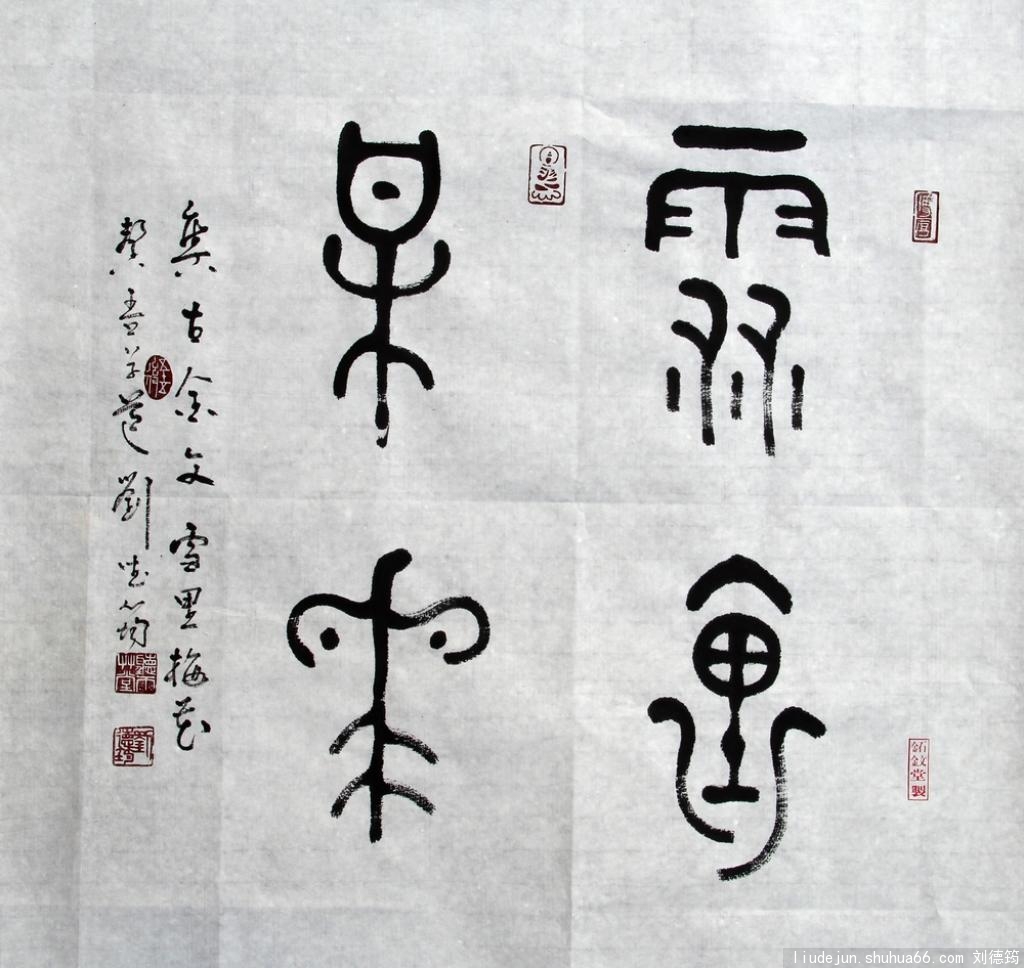 雪裏
梅花
集古金文雪里梅花
劉德筠
聽雨草堂
liudejun.shuhua66.com 刘德筠